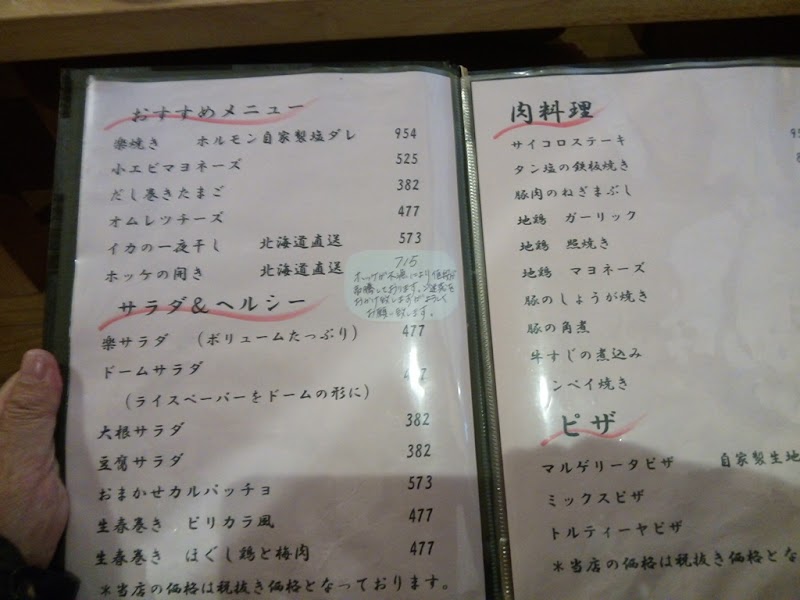 おすすめメニュー
楽焼き ホルモン自家製塩ダレ 954
小エビマヨネーズ 525
だし巻きたまご 382
オムレツチーズ 477
イカの一夜干し 北海道直送 573
ホッケの開き 北海道直送 715
ホッケが不漁により価格が
高騰しております。ご迷惑を
おかけ致しますがよろしく
お願い致します。
サラダ&ヘルシー
楽サラダ (ボリュームたっぷり) 477
ドームサラダ
(ライスペーパーをドームの形に)
大根サラダ 382
豆腐サラダ 382
おまかせカルパッチョ 573
生春巻き ピリカラ風 477
生春巻き ほぐし鶏と梅肉 477
*当店の価格は税抜き価格となっております。
肉料理
サイコロステーキ
タン塩の鉄板焼き
豚肉のねぎまぶし
地鶏 ガーリック
地鶏 照焼き
地鶏 マヨネーズ
豚のしょうが焼き
豚の角煮
牛すじの煮込み
ンペイ焼き
ピザ
マルゲリータピザ 自家製生地
ミックスピザ
トルティーヤピザ
*当店の価格は税抜き価格とな